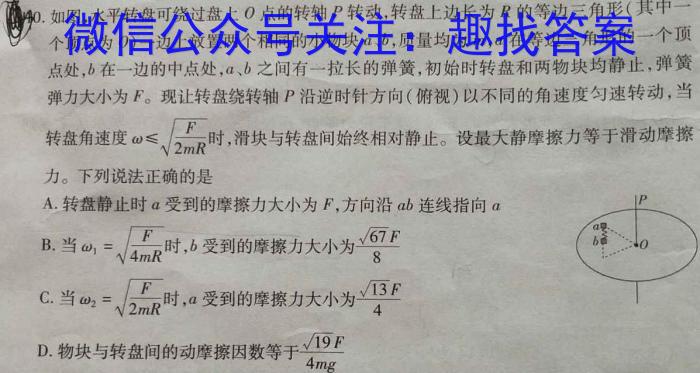 10. 如图,水平转盘可绕过盘上O点的转轴P转动,转盘上边长为R的等边三角形(其中一
个顶点为O
微信公众号关注：趣找答案
两个相同的小物块a、b,质量均
一个顶
点处,b在一边的中点处,a、b之间有一拉长的弹簧,初始时转盘和两物块均静止,弹簧
弹力大小为F。现让转盘绕转轴P沿逆时针方向(俯视)以不同的角速度匀速转动,当
转盘角速度ω≤√(F/2mR)时,滑块与转盘间始终相对静止。设最大静摩擦力等于滑动摩擦
力。下列说法正确的是
A. 转盘静止时a受到的摩擦力大小为F,方向沿ab连线指向a
B. 当ω₁=√(F/4mR)时,b受到的摩擦力大小为√67F/8
C. 当ω₂=√(F/2mR)时,a受到的摩擦力大小为√13F/4
D. 物块与转盘间的动摩擦因数等于√19F/4mg
P
a
b
O